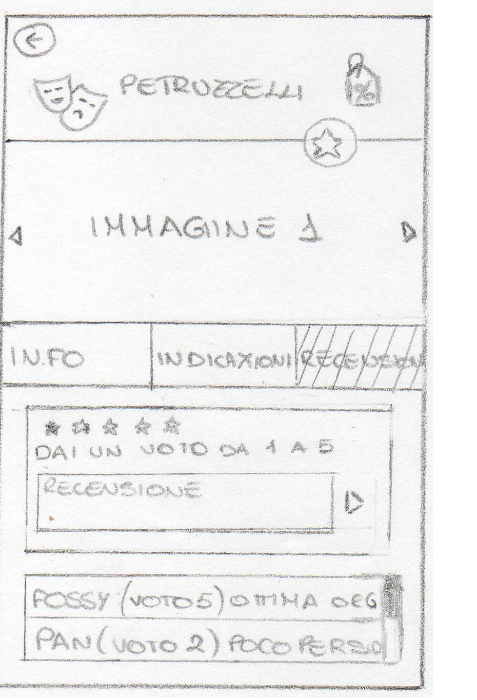 PETRUZZELLI
%
IMMAGINE 1
INFO
INDICAZIONI
RECENSIONI
DAI UN VOTO DA 1 A 5
RECENSIONE
POSSY (VOTO 5) OTTIMA ORG
PAN (VOTO 2) POCO PERSO